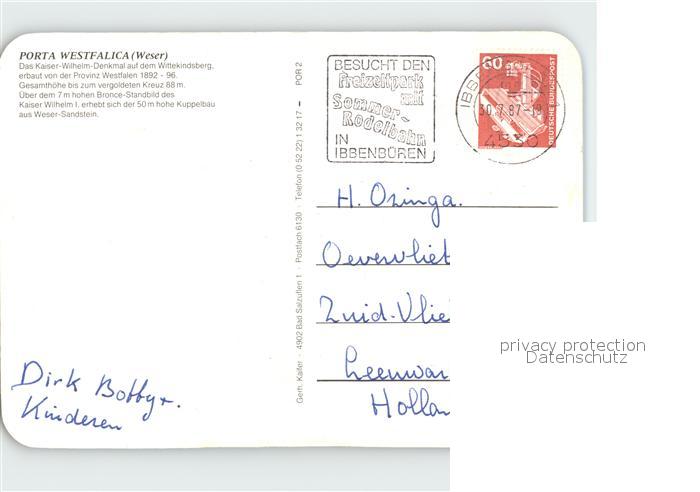 PORTA WESTFALICA (Weser)
Das Kaiser-Wilhelm-Denkmal auf dem Wittekindsberg,
erbaut von der Provinz Westfalen 1892 - 96.
Gesamthöhe bis zum vergoldeten Kreuz 88 m.
Über dem 7 m hohen Bronce-Standbild des
Kaiser Wilhelm I. erhebt sich der 50 m hohe Kuppelbau
aus Weser-Sandstein.
Dirk Bobby +.
Kinderen
Gerh. Kaifer · 4902 Bad Salzuflen 1 · Postfach 6130 · Telefon (0 52 22) 1 32 17 — POR 2
BESUCHT DEN
Freizeitpark
mit
Sommer-
Rodelbahn
IN
IBBENBÜREN
60
DEUTSCHE BUNDESPOST
30.7.87-19
4530
H. Ozinga.
Oevervliet
Zuid-Vlie
Leenwar
Hollan
privacy protection
Datenschutz